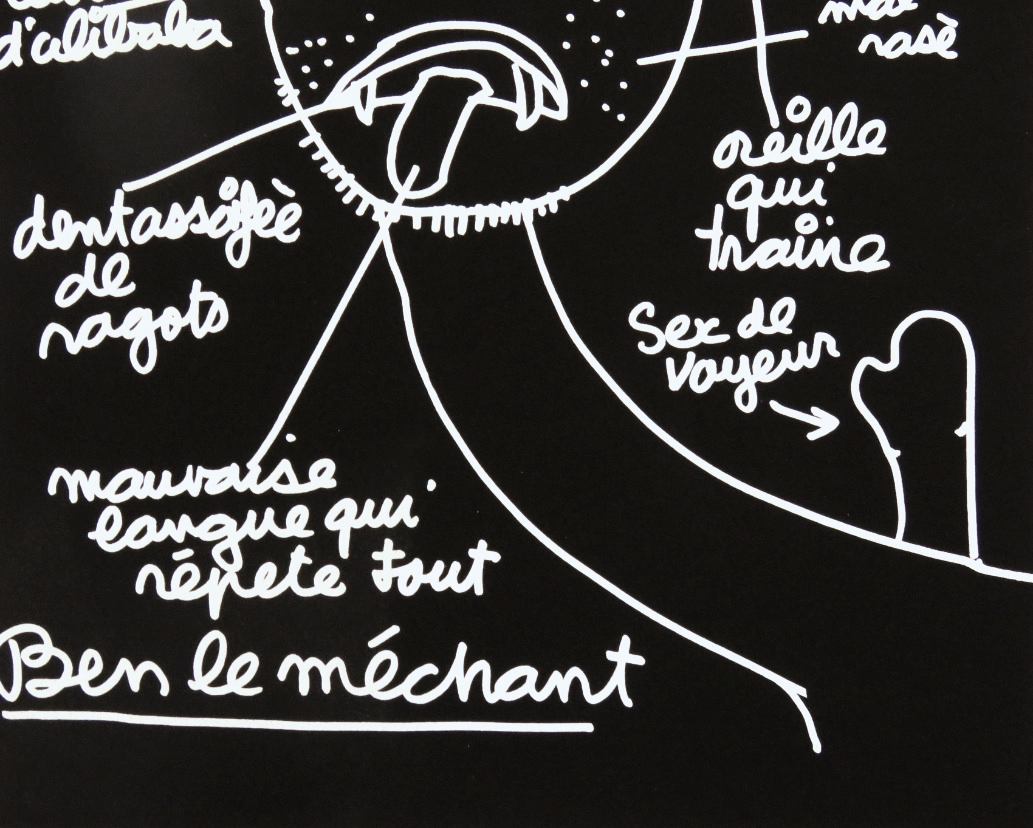 d'alibaba
mal
rasé
oreille
qui
traine
dent assoifée
de
ragots
Sex de
voyeur
mauvaise
langue qui
répete tout
Ben le méchant